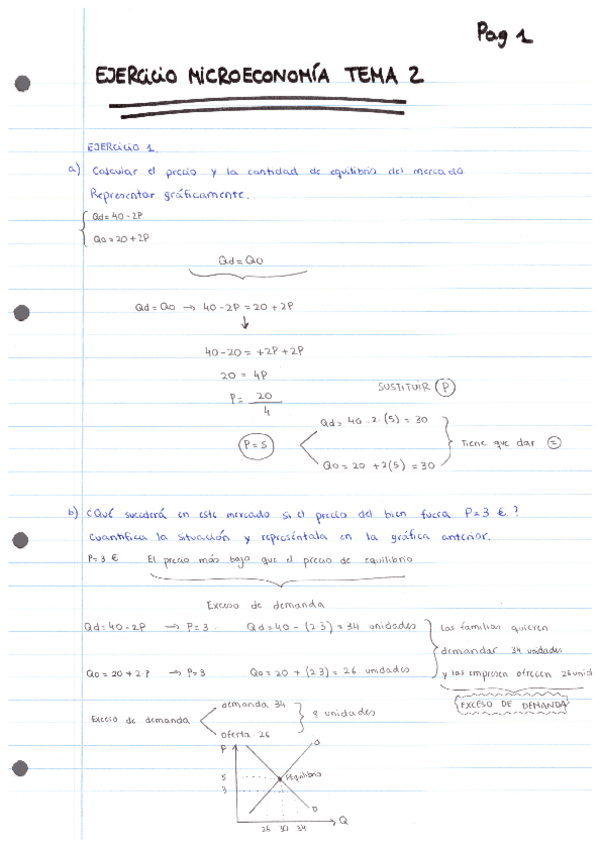 Pag 1
EJERCICIO MICROECONOMÍA TEMA 2
EJERCICIO 1.
a) Calcular el precio y la cantidad de equilibrio del mercado
Representar gráficamente.
Qd = 40 - 2P
Qo = 20 + 2P
Qd = Qo
Qd = Qo → 40 - 2P = 20 + 2P
↓
40 - 20 = +2P + 2P
20 = 4P
SUSTITUIR P
P = 20
4
Qd = 40 - 2·(5) = 30
P = 5
Tiene que dar =
Qo = 20 + 2(5) = 30
b) ¿Qué sucederá en este mercado si el precio del bien fuera P = 3 €?
Cuantifica la situación y represéntala en la gráfica anterior.
P = 3 € El precio más bajo que el precio de equilibrio
Exceso de demanda
Qd = 40 - 2P → P = 3 Qd = 40 - (2·3) = 34 unidades
Las familias quieren
demandar 34 unidades
Qo = 20 + 2·P → P = 3 Qo = 20 + (2·3) = 26 unidades
y las empresas ofrecen 26 unid
EXCESO DE DEMANDA
demanda 34
Exceso de demanda
8 unidades
oferta 26
P
O
5
Equilibrio
3
D
Q
26 30 34